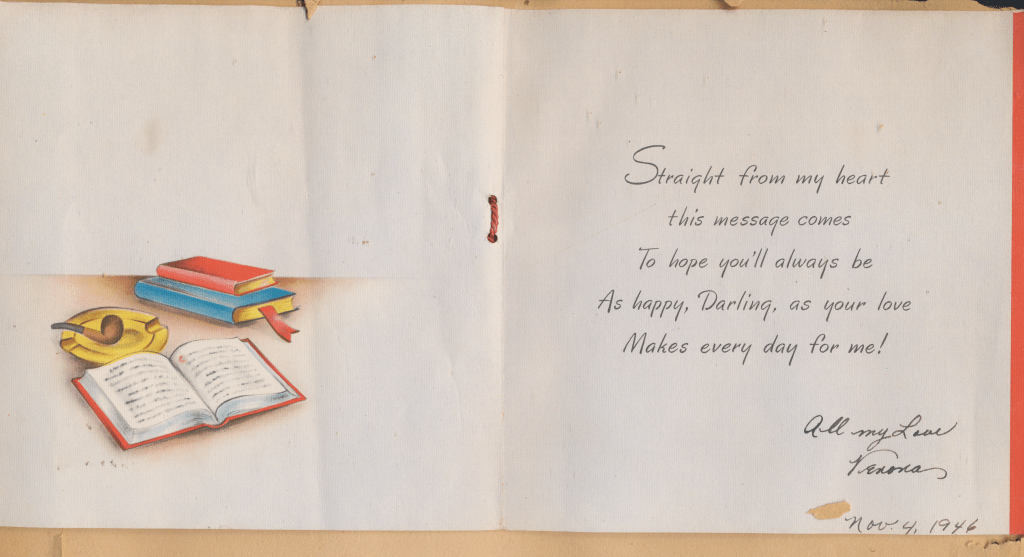 Straight from my heart
this message comes
To hope you'll always be
As happy, Darling, as your love
Makes every day for me!
All my Love
Verona
Nov. 4, 1946